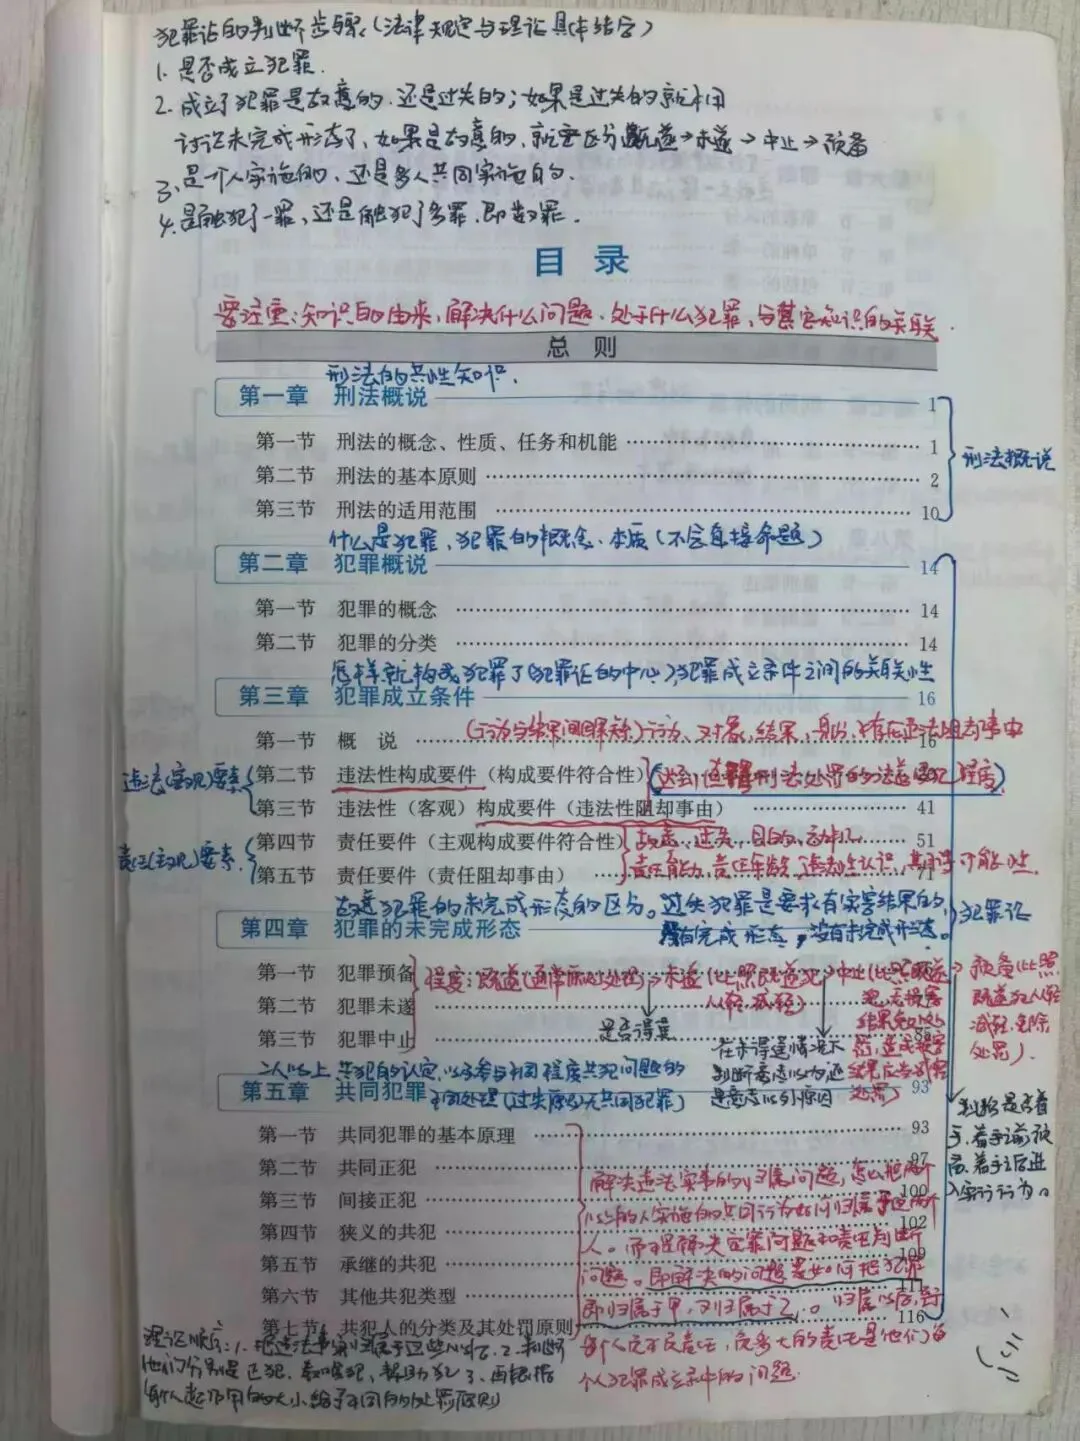 犯罪论的判断步骤(法律规定与理论具体结合)
1.是否成立犯罪.
2.成立了犯罪是故意的.还是过失的;如果是过失的就不用
讨论未完成形态了,如果是故意的,就要区分既遂→未遂→中止→预备
3.是一个人实施的、还是多人共同实施的.
4.是触犯了一罪,还是触犯了多罪.即数罪.
目 录
要注重:知识的由来,解决什么问题、处于什么犯罪,与其它知识的关联.
总 则
刑法的共性知识.
第一章 刑法概说 1
第一节 刑法的概念、性质、任务和机能 1
刑法概说
第二节 刑法的基本原则 2
第三节 刑法的适用范围 10
什么是犯罪、犯罪的概念、本质(不会直接命题)
第二章 犯罪概说 14
第一节 犯罪的概念 14
第二节 犯罪的分类 14
怎样就构成犯罪了(犯罪论的中心),犯罪成立条件之间的关联性
第三章 犯罪成立条件 16
第一节 概 说 16
行为、对象,结果,身份,存在违法阻却事由
违法(客观)要素
第二节 违法性构成要件(构成要件符合性)
第三节 违法性(客观)构成要件(违法性阻却事由) 41
第四节 责任要件(主观构成要件符合性) 51
故意、过失、目的、动机
责任(主观)要素
第五节 责任要件(责任阻却事由) 71
责任能力,责任年龄,违法性认识,期待可能性.
故意犯罪的未完成形态的区分。过失犯罪是要求有实害结果的,
犯罪论
第四章 犯罪的未完成形态
没有完成形态,没有未完成形态。
第一节 犯罪预备
第二节 犯罪未遂
第三节 犯罪中止 85
是否得逞
在未得逞情况下
判断意志以内还
是意志以外原因
二人以上,共犯的认定,以及参与不同程度共犯问题的
第五章 共同犯罪 93
不同处理(过失原则无共同犯罪)
第一节 共同犯罪的基本原理 93
第二节 共同正犯 97
第三节 间接正犯 100
第四节 狭义的共犯 102
第五节 承继的共犯 109
第六节 其他共犯类型 111
第七节 共犯人的分类及其处罚原则 116
判断是否着
手.着手之前预
备.着手之后进
入实行行为。
解决违法事实的归属问题,怎么把两个
以上的人实施的共同行为如何归属于这两个
人。而不是解决定罪问题和责任判断
问题。即解决的问题是如何把犯罪
即归属于甲,又归属于乙。归属以后,至于
每个人负不负责任,负多大的责任是他们每
个人犯罪成立中的问题.
理论顺序:1.把违法事实归属于这些人以下.2.判断
他们分别是正犯、教唆犯,帮助犯 3、再根据
每个人起作用的大小给予不同的处罚原则